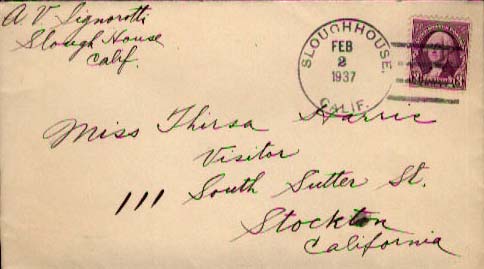 A. V. Signorotti
Slough House
Calif.
SLOUGHHOUSE.
FEB
2
1937
CALIF.
Miss Thirsa
Visitor
111 South Sutter St.
Stockton
California